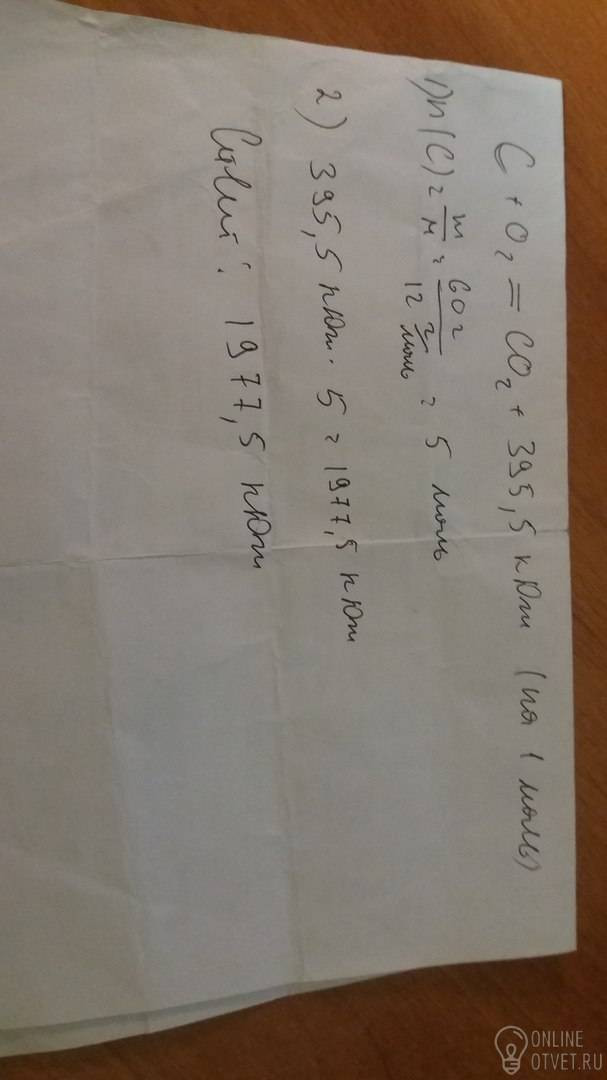 C + O₂ = CO₂ + 395,5 кДж (на 1 моль)
1) n(C) = m/M = 60 г / 12 г/моль = 5 моль
2) 395,5 кДж · 5 = 1977,5 кДж
Ответ: 1977,5 кДж
ONLINE
OTVET.RU